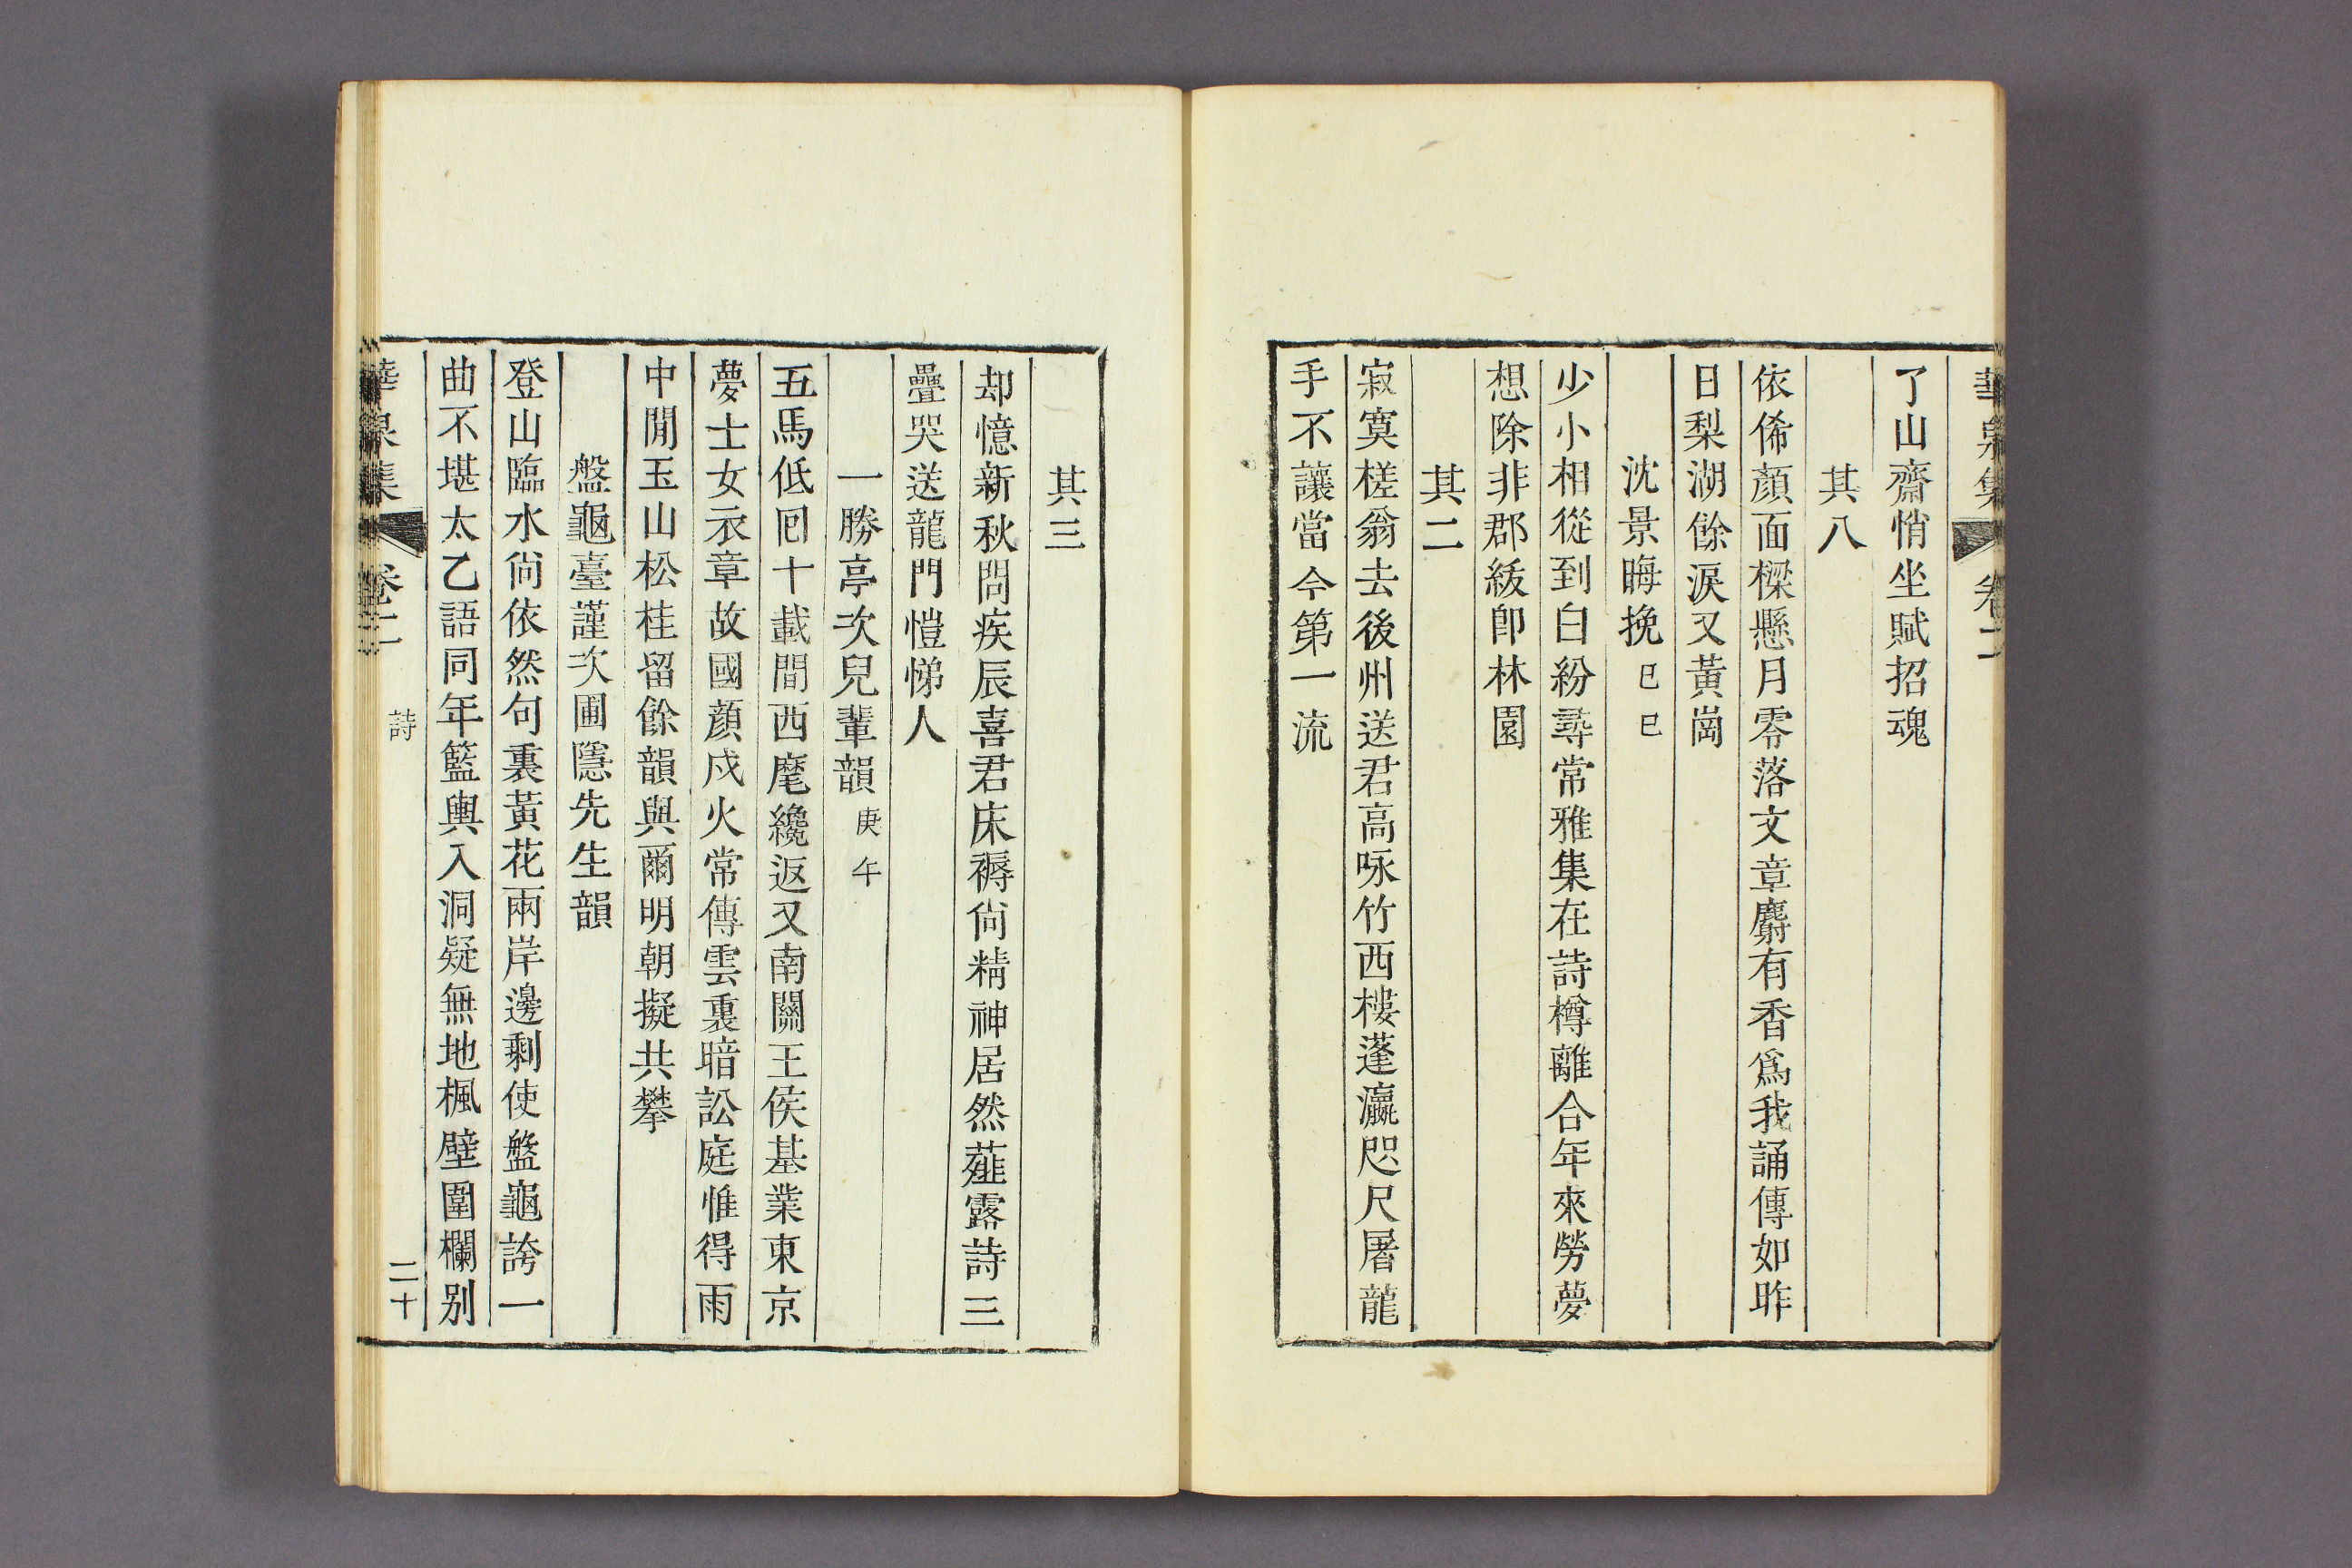 華泉集 卷二
了山齋悄坐賦招魂
其八
依俙顏面樑懸月零落文章麝有香爲我誦傳如昨
日梨湖餘淚又黃崗
沈景晦挽 己巳
少小相從到白紛尋常雅集在詩樽離合年來勞夢
想除非郡紱卽林園
其二
寂寞槎翁去後州送君高咏竹西樓蓬瀛咫尺屠龍
手不讓當今第一流
其三
却憶新秋問疾辰喜君床褥尙精神居然薤露詩三
疊哭送龍門愷悌人
一勝亭次兒輩韻 庚午
五馬低回十載間西麾纔返又南關王侯基業東京
夢士女衣章故國顏戍火常傳雲裏暗訟庭惟得雨
中閒玉山松桂留餘韻與爾明朝擬共攀
盤龜臺謹次圃隱先生韻
登山臨水尙依然句裏黃花兩岸邊剩使盤龜誇一
曲不堪太乙語同年籃輿入洞疑無地楓壁圍欄别
華泉集 卷二 詩 二十